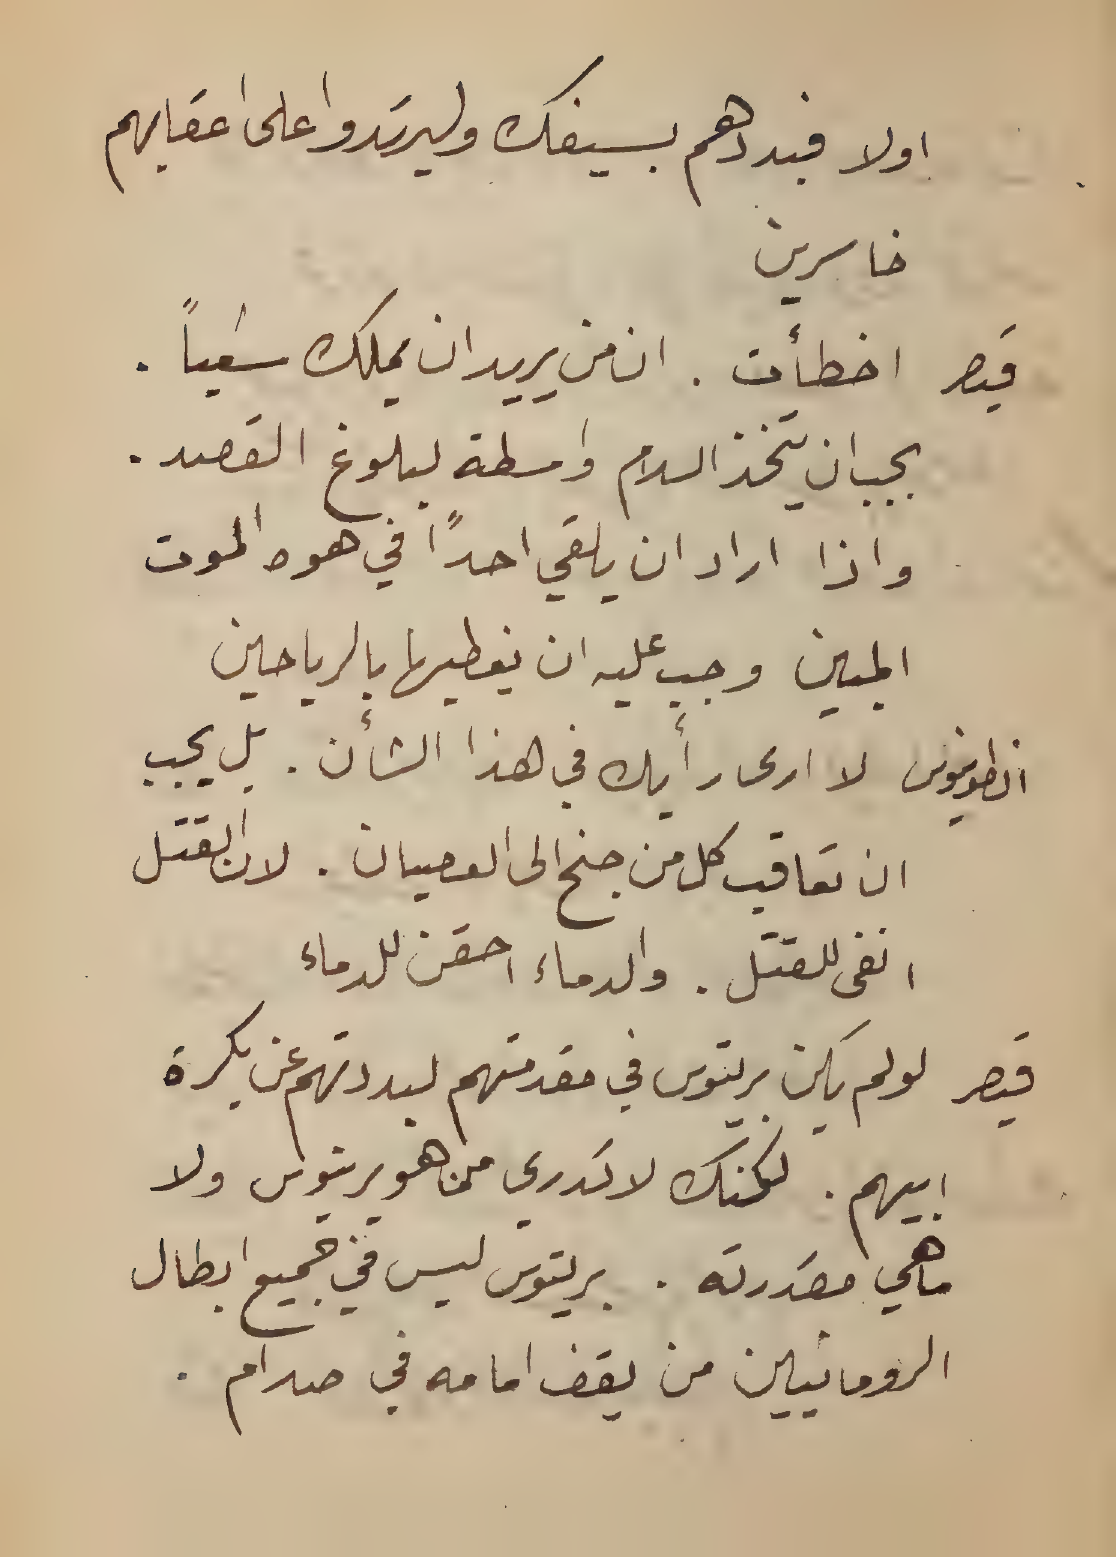 اولا فبددهم بسيفك وليرتدوا على اعقابهم
خاسرين
قيصر اخطأت . ان من يريد ان يملك شعباً .
يجب ان يتخذ السلام واسطة لبلوغ القصد .
واذا اراد ان يلقي احدًا في هوه الموت
المبين وجب عليه ان يغطيها بالرياحين
انطونيوس لا ارى رأيك في هذا الشأن . بل يجب
ان تعاقب كل من جنح الى العصيان . لان القتل
انفى للقتل . والدماء احقن للدماء
قيصر لو لم يكن بريتوس في مقدمتهم لبددتهم عن بكرة
ابيهم . لكنك لا تدري من هو بريتوس ولا
ما هي مقدرته . بريتوس ليس في جميع ابطال
الرومانيين من يقف امامه في صدام .